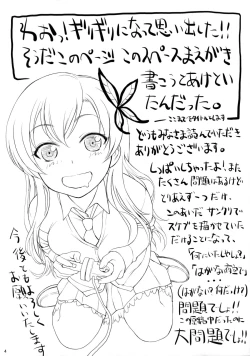 わおっ!ギリギリになって思い出した!!
そうだこのページ このスペースまえがき
書こうとあけてい
たんだった。
どうもみなさま読んでいただき
ありがとうございます。
しっぱいしちゃったよ!また
たくさん問題はあるけど
とりあえず〜った。
このあいだ サンクリで
スケブを描かせていた
だけることになって、
「何にいたしましょ?」
「はがないの夜空で」
・・・
(はがない?何だっけ?)
問題でしょ!!
大問題でしょ!!
今後ともよろしく
お願いいたします